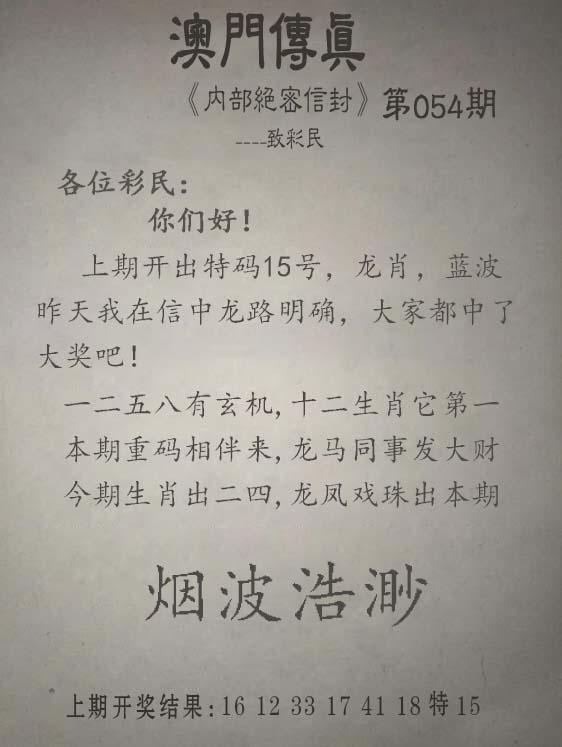 澳門傳眞
《内部絕密信封》第054期
----致彩民
各位彩民:
你们好!
上期开出特码15号，龙肖，蓝波
昨天我在信中龙路明确，大家都中了
大奖吧!
一二五八有玄机,十二生肖它第一
本期重码相伴来,龙马同事发大财
今期生肖出二四,龙凤戏珠出本期
烟波浩渺
上期开奖结果:16 12 33 17 41 18 特 15